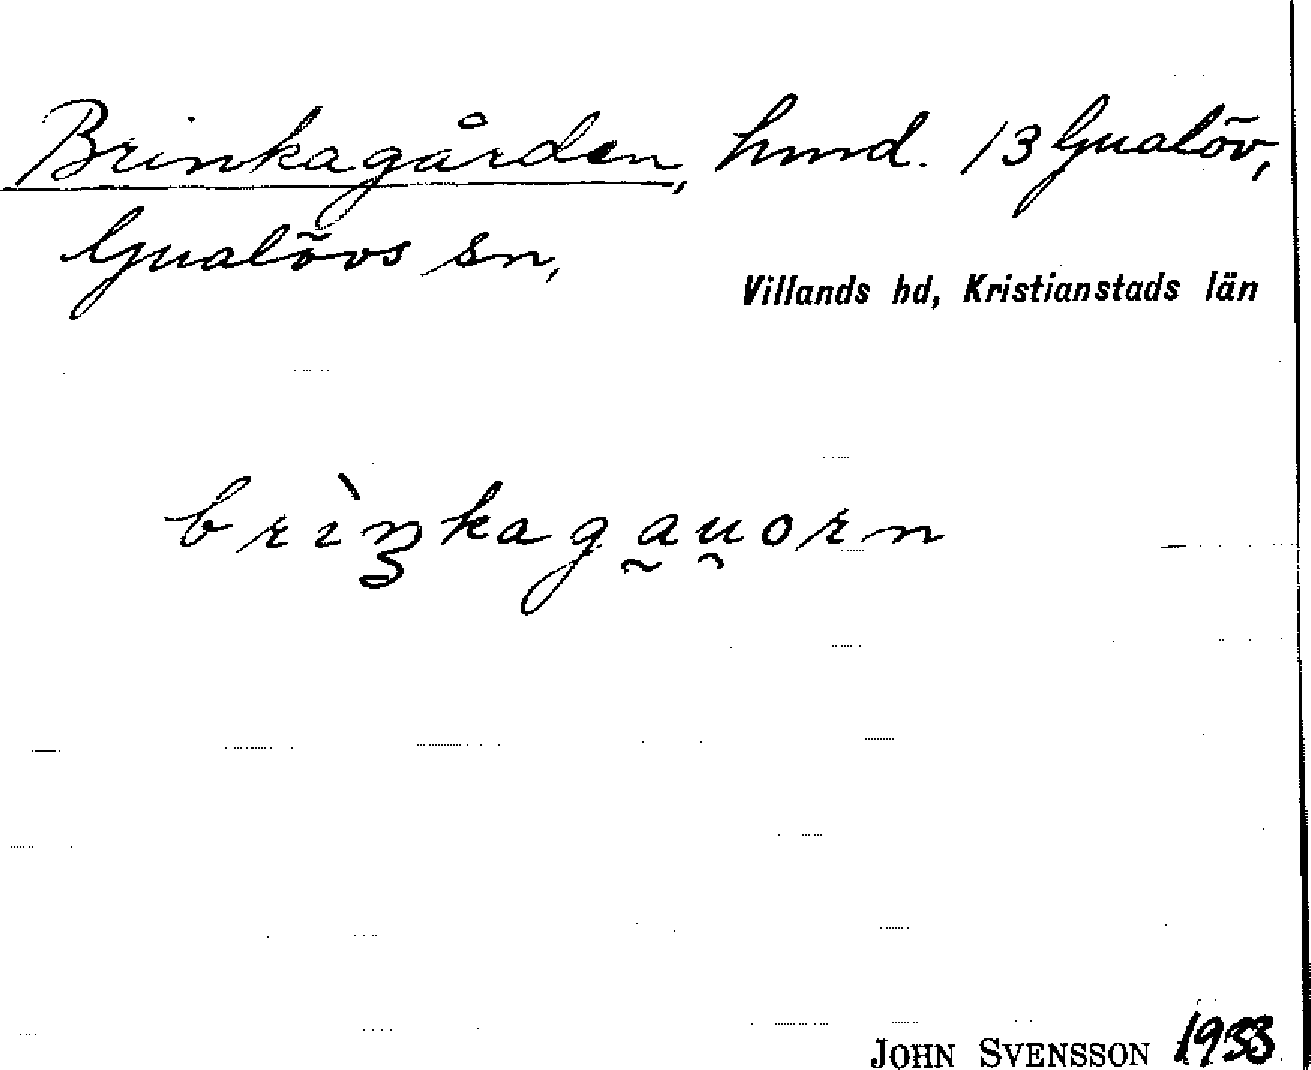 Brinkagården, hmd. 13 Gualöv,
Gualövs sn,
Villands hd, Kristianstads län
brìŋkaga̰u̯orn
JOHN SVENSSON 1933